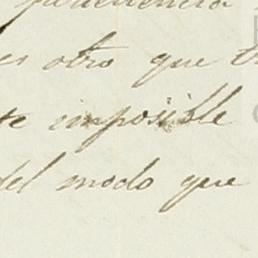 es otro que
te imposible
del modo que